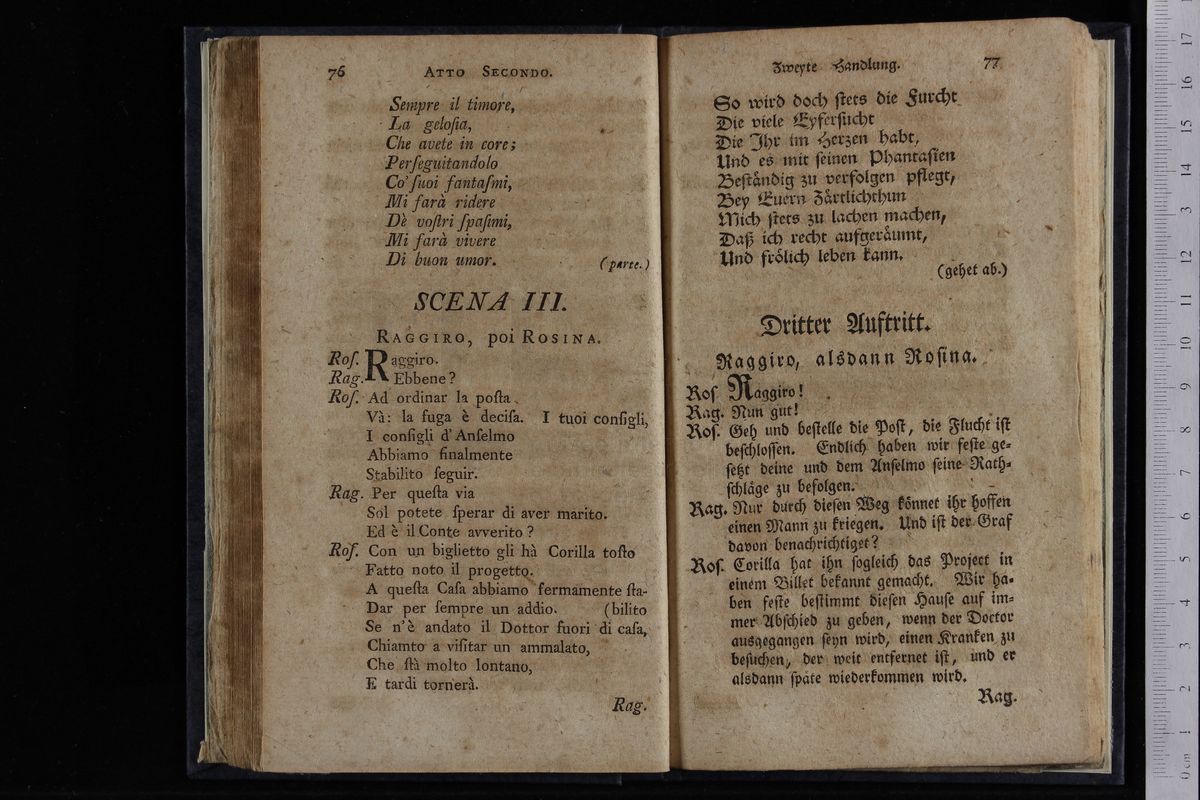 76 ATTO SECONDO.
Sempre il timore,
La geloſia,
Che avete in core;
Perſeguitandolo
Co' ſuoi fantaſmi,
Mi farà ridere
Dè voſtri ſpaſimi,
Mi farà vivere
Di buon umor. (parte.)
SCENA III.
RAGGIRO, poi ROSINA.
Roſ. Raggiro.
Rag. Ebbene?
Roſ. Ad ordinar la poſta.
Và: la fuga è deciſa. I tuoi conſigli,
I conſigli d'Anſelmo
Abbiamo finalmente
Stabilito ſeguir.
Rag. Per queſta via
Sol potete ſperar di aver marito.
Ed è il Conte avverito?
Roſ. Con un biglietto gli hà Corilla toſto
Fatto noto il progetto.
A queſta Caſa abbiamo fermamente ſta-
Dar per ſempre un addio. (bilito
Se n'è andato il Dottor fuori di caſa,
Chiamto a viſitar un ammalato,
Che ſtà molto lontano,
E tardi tornerà.
Rag.
Zweyte Handlung. 77
So wird doch ſtets die Furcht
Die viele Eyferſucht
Die Ihr im Herzen habt,
Und es mit ſeinen Phantaſien
Beſtändig zu verfolgen pflegt,
Bey Euern Zärtlichthun
Mich ſtets zu lachen machen,
Daß ich recht aufgeräumt,
Und frölich leben kann.
(gehet ab.)
Dritter Auftritt.
Raggiro, alsdann Roſina.
Roſ Raggiro!
Rag. Nun gut!
Roſ. Geh und beſtelle die Poſt, die Flucht iſt
beſchloſſen. Endlich haben wir feſte ge=
ſetzt deine und dem Anſelmo ſeine Rath=
ſchläge zu befolgen.
Rag. Nur durch dieſen Weg könnet ihr hoffen
einen Mann zu kriegen. Und iſt der Graf
davon benachrichtiget?
Roſ. Corilla hat ihn ſogleich das Project in
einem Billet bekannt gemacht. Wir ha=
ben feſte beſtimmt dieſen Hauſe auf im=
mer Abſchied zu geben, wenn der Doctor
ausgegangen ſeyn wird, einen Kranken zu
beſuchen, der weit entfernet iſt, und er
alsdann ſpäte wiederkommen wird.
Rag.
0 cm 1 2 3 4 5 6 7 8 9 10 11 12 13 14 15 16 17